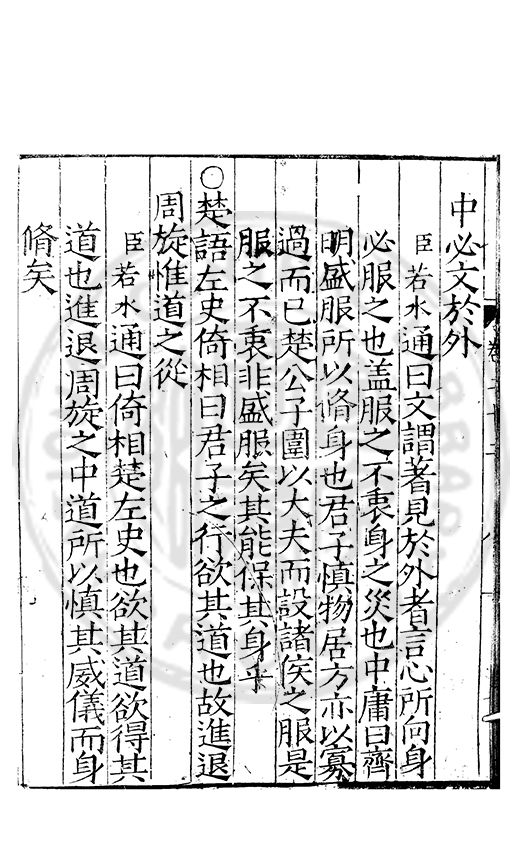 中必文於外
臣若水通曰文謂著見於外者言心所向身
必服之也盖服之不衷身之災也中庸曰齊
明盛服所以脩身也君子慎物居方亦以寡
過而已楚公子圍以大夫而設諸侯之服是
服之不衷非盛服矣其能保其身乎
○楚語左史倚相曰君子之行欲其道也故進退
周旋惟道之從
臣若水通曰倚相楚左史也欲其道欲得其
道也進退周旋之中道所以慎其威儀而身
脩矣